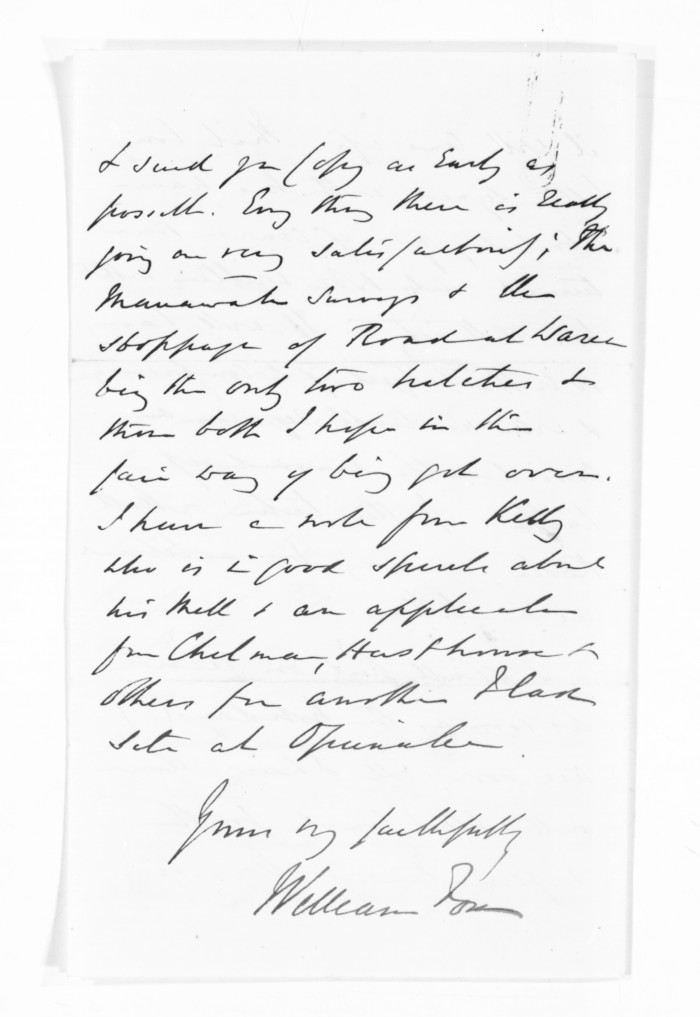 & send you Copy as Early as
possible. Every thing there is really
going on very satisfactorily; the
Manawatu Surveys & the
stoppage of Road at
being the only two hitches &
them both I hope in the
fair way of being got over.
I have a note from Kelly
who is in good spirits about
his Mill & an application
from Chelman, Hasthouse &
others for another Flax
site at Opunake.
Yours very faithfully
William Fox